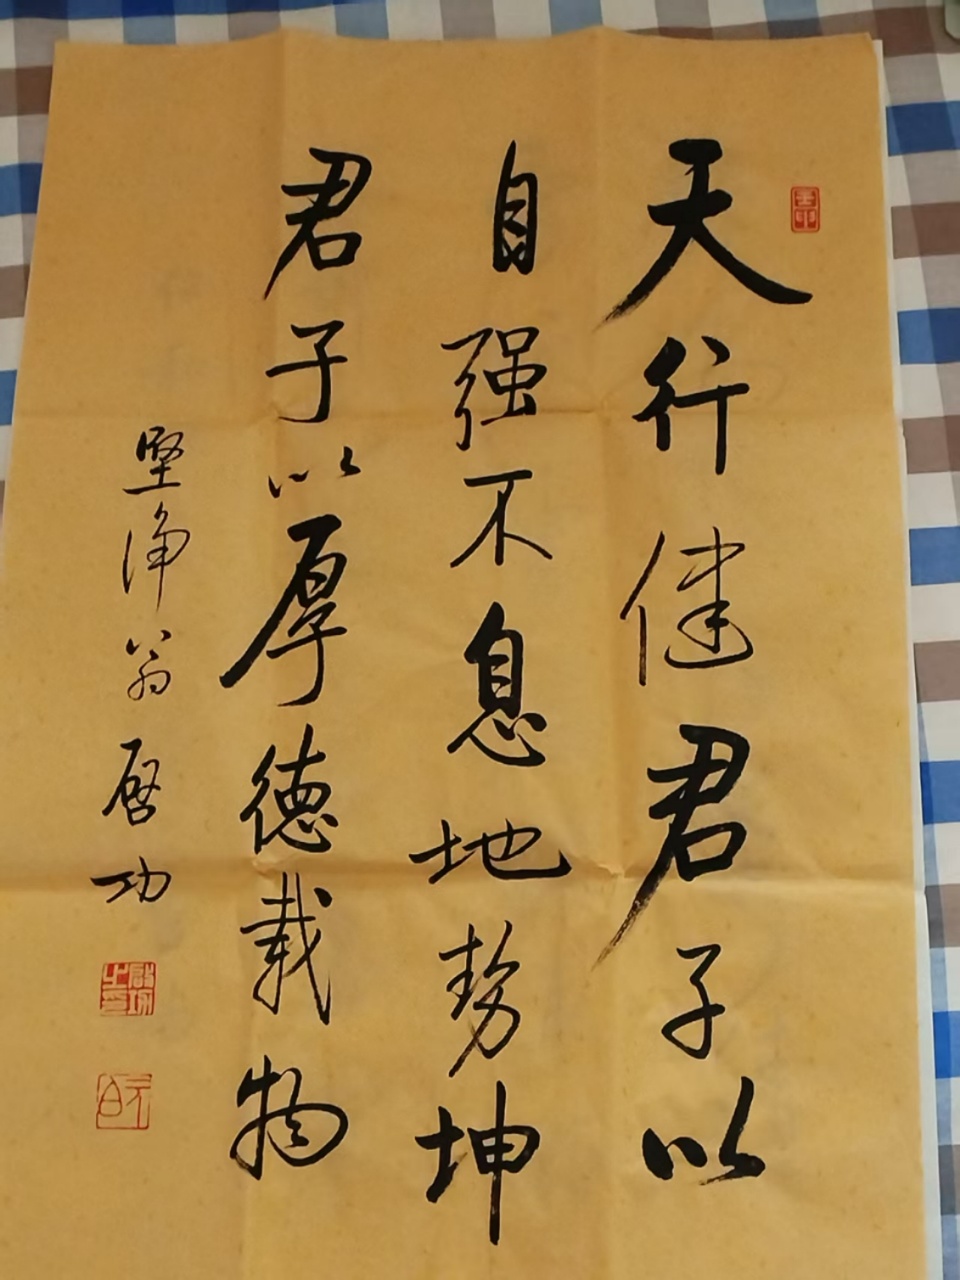 天行健君子以
自强不息地势坤
君子以厚德载物
坚净翁启功
启功之印